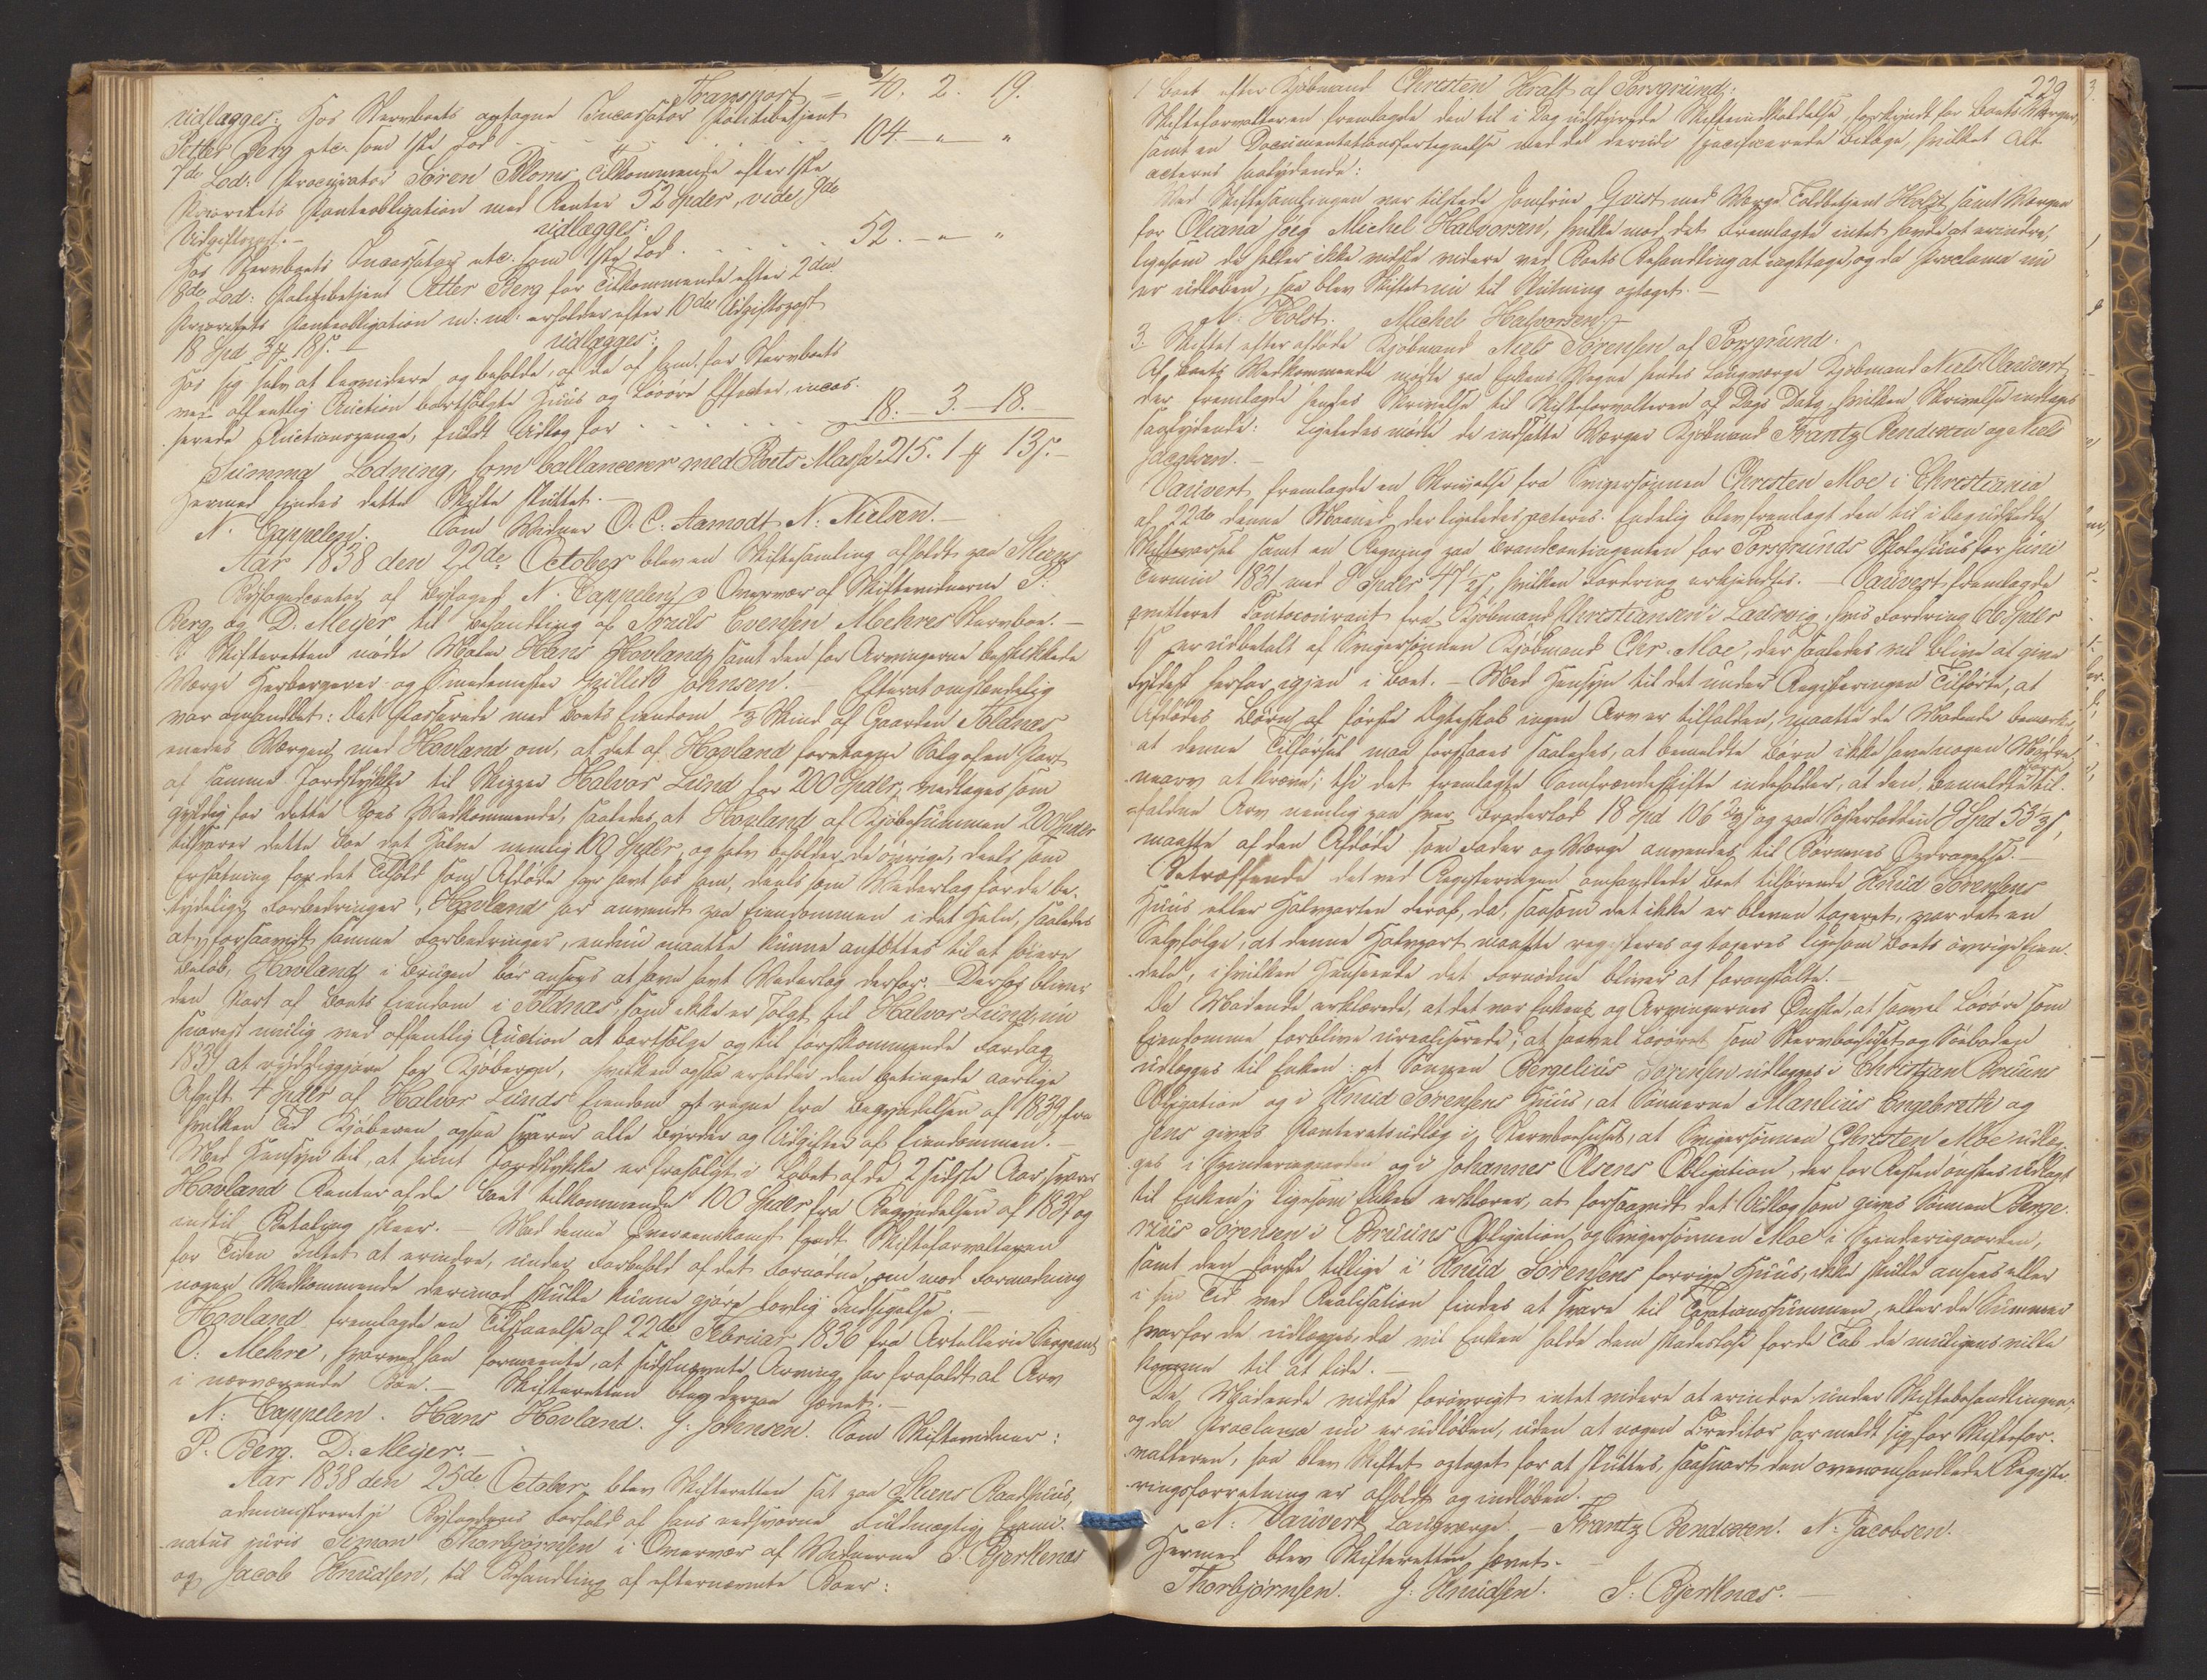 Transport = 40. 2. 19.
udlægges: Hos Stervboets antagne Incassator Politibetjent
Petter Berg etc. som 1ste Lod . . . . . . 104. — " — "
7de Lod: Procurator Søren Bloms Tilkommende efter 1ste
Prioritets Panteobligation med Renter 52 Spdlr, vide 9de
Udgiftspost. — udlægges:
Hos Stervboets Incassator etc. som 1ste Lod . . . . . 52. — " — "
8de Lod: Politibetjent Petter Berg for Tilkommende efter 2den
Prioritets Panteobligation m: m: erholder efter 10de Udgiftspost
18 Spd 3 ₰ 18 s. — udlægges:
Hos sig selv at liqvidere og beholde, af de af ham for Stervboets
ved offentlig Auction bortsolgte Huus og Løsøre Effecter, incas-
serede Auctionspenge, fuldt Udlæg for . . . . . . 18. — 3. — 18.
Summa Lodning, som ballancerer med Boets Massa 215. 1 ₰ 13 s. —
Hermed endes dette Skifte sluttet. —
N. Cappelen. Som Vidner O. C. Aamodt. N. Nielsen. —
Aar 1838 den 22de October blev en Skiftesamling afholdt paa Skiens
Byfogedcontor af Byfoged N. Cappelen i Overvær af Skiftevidnerne P.
Berg og D. Meyer til Behandling af Truils Evensen Mehres Stervboe. —
I Skifteretten mødte Maler Hans Hovland samt den for Arvingerne beskikkede
Værge Herbergerer og Smedemester Gullik Johnsen. Efterat omstændelig
var omhandlet: Det Passerede med Boets Eiendom ½ Skind af Gaarden Foldnæs
enedes Værgen med Hovland om, at det af Hovland foretagne Salg af en Part
af samme Jordstykke til Skipper Halvor Lund for 200 Spdlr, vedtages som
gyldig for dette Boes Vedkommende, saaledes at Hovland af Kjøbesummen 200 Spdlr
tilsvarer dette Boe det Halve nemlig 100 Spdlr og selv beholder de øvrige, deels som
Erstatning for det Tilhold som Afdøde har havt hos ham, deels som Vederlag for de be-
tydelige Forbedringer, Hovland har anvendt paa Eiendommen i det Hele, saaledes
at, forsaavidt samme Forbedringer, endnu maatte kunne ansættes til et høiere
Beløb, Hovland i Brugen bør ansees at have havt Vederlag derfor. — Derfor bliver
den Part af Boets Eiendom i Foldnæs, som ikke er solgt til Halvor Lund, nu
snarest mulig ved offentlig Auction at bortsælge og til førstkommende Fardag
1839 at ryddeliggjøre for Kjøberen, hvilken ogsaa erholder den betingede aarlige
Afgift 4 Spdlr af Halvor Lunds Eiendom at regne fra Begyndelsen af 1839 fra
hvilken Tid Kjøberen ogsaa svarer alle Byrder og Udgifter af Eiendommen. —
Med Hensyn til, at hiint Jordstykke er frasolgt i Løbet af de 2 sidste Aar, svarer
Hovland Renter af de Boet tilkommende 100 Spdlr fra Begyndelsen af 1837 og
indtil Betaling skeer. Mod denne Overeenskomst fandt Skifteforvalteren
for Tiden Intet at erindre, under Forbehold af det Fornødne, om mod Formodning
nogen Vedkommende derimod skulle kunne gjøre lovlig Indsigelse. —
Hovland fremlagde en Tilstaaelse af 22de Februar 1836 fra Artillerie Sergeant
O. Mehre, hvorved han formeente, at sidstnævnte Arving har frafaldt al Arv
i nærværende Boe. — Skifteretten blev derpaa hævet. —
N. Cappelen. Hans Hovland. G. Johnsen. Som Skiftevidner:
P. Berg. D. Meyer. —
Aar 1838 den 25de October blev Skifteretten sat paa Skiens Raadhuus,
administreret i Byfogdens Forfald af hans edsvorne Fuldmægtig Exami-
natus juris Simon Thorbjørnsen i Overvær af Vidnerne J. Bjerkenæs
og Jacob Knudsen, til Behandling af efternævnte Boer:
229
1 Boet efter Kjøbmand Christen Kraft af Porsgrund:
Skifteforvalteren fremlagde den til i Dag udstædte Skifteindkaldelse, forkyndt for Boets Værger,
samt en Documentationsfortegnelse med de deriude specificerede Bilage, hvilket Alt
acteres saalydende:
Ved Skiftesamlingen var tilstede Jomfrue Qvist med Værge Toldbetjent Holst samt Værgen
for Oleana Høeg Michel Halvorsen, hvilke mod det Fremlagte intet havde at erindre,
ligesom de heller ikke vidste videre ved Boets Behandling at iagttage, og da Proclama nu
er udløben, saa blev Skiftet nu til Slutning optaget. —
N. Holst. Michel Halvorsen. —
3. Skiftet efter afdøde Kjøbmand Niels Sørensen af Porsgrund.
Af Boets Vedkommende mødte paa Enkens Vegne hendes Laugværge Kjøbmand Niels Vauvert
der fremlagde hendes Skrivelse til Skifteforvalteren af Dags Dato, hvilken Skrivelse indtages
saalydende: Ligeledes mødte de indsatte Værger Kjøbmand Frantz Bendixen og Niels
Jacobsen. —
Vauvert fremlagde en Skrivelse fra Svigersønnen Christen Moe i Christiania
af 22de denne Maaned, der ligeledes acteres. Endelig blev fremlagt den til i Dag udstædte
Skiftevarsel samt en Regning paa Brandcontingenten for Porsgrunds Skolehuus for Juni
Termin 1831 med 8 Spdlr 47 ½ s, hvilken Fordring erkjendtes. — Vauvert fremlagde
qvitteret Contocourant fra Kjøbmand Christiansen i Laurvig, hvis Fordring 66 Spdlr
s er udbetalt af Svigersønnen Kjøbmand Chr. Moe, der saaledes vil blive at give
Fyldest herfor igjen i Boet. — Med Hensyn til det under Registeringen Tilførte, at
Afdødes Børn af første Ægteskab ingen Arv er tilfalden, maatte de Mødende bemærke
at denne Tilførsel maa forstaaes saaledes, at bemeldte Børn ikke have nogen Mødre-
nearv at kræve; thi det fremlagte Samfrændeskifte indeholder, at den bemeldte Børn til-
faldne Arv nemlig paa hver Broderlod 18 Spd 106 ⅔ s og paa Søsterlodden 9 Spd 53 ⅓ s,
maatte af den Afdøde som Fader og Værge anvendes til Børnenes Opdragelse. —
Betræffende det ved Registeringen omhandlede Boet tilhørende Knud Sørensens
Huus eller Halvparten deraf, da, saasom det ikke er bleven taxeret, var det en
Selvfølge, at denne Halvpart maatte registeres og taxeres ligesom Boets øvrige Eien-
dele, i hvilken Henseende det Fornødne bliver at foranstalte. —
De Mødende erklærede, at det var Enkens og Arvingernes Ønske, at saavel Løsøre som
Eiendomme forblive urealiserede, at saavel Løsøret som Stervbohuset og Søeboden
udlægges til Enken: at Sønnen Bergelius Sørensen udlægges i Christian Bruuns
Obligation og i Knud Sørensens Huus, at Sønnerne Manlius Engebreth og
Jens gives Panteretsudlæg i Stervboehuset, at Svigersønnen Christen Moe udlæg-
ges i Spinderiegaarden og i Johannes Olsens Obligation, der for Resten ønskes udlagt
til Enken; ligesom Enken erklærer, at forsaavidt det Udlæg som gives Sønnen Berge-
rius Sørensen i Bruuns Obligation og Svigersønnen Moe i Spinderigaarden,
samt den første tillige i Knud Sørensens forrige Huus, ikke skulle ansees eller
i sin Tid ved Realisation findes at svare til Taxationssummen, eller de Summer
hvorfor de udlægges, da vil Enken holde dem skadesløse for de Tab de muligens ville
komme til at lide. —
De Mødende vidste forøvrigt intet videre at erindre under Skiftebehandlingen,
og da Proclama nu er udløben, uden at nogen Creditor har meldt sig for Skiftefor-
valteren, saa blev Skiftet optaget for at sluttes, saasnart den ovenomhandlede Registe-
ringsforretning er afholdt og indløben.
N. Vauvert Laugværge. — Frantz Bendixen. N. Jacobsen.
Hermed blev Skifteretten hævet. —
Thorbjørnsen. J. Knudsen. J. Bjerknæs. —